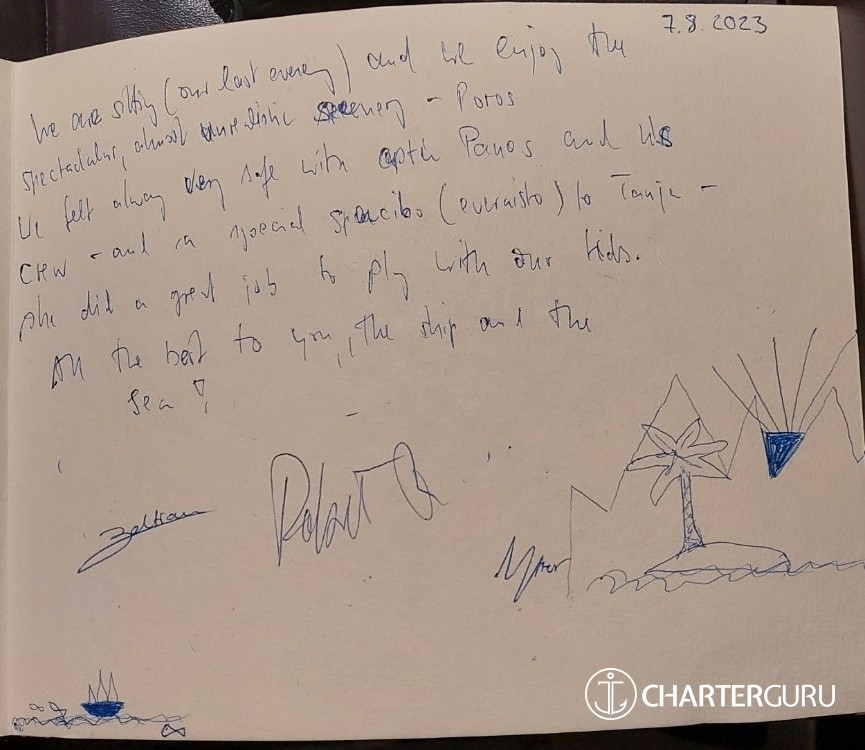 7.8.2023
We are sitting (our last evening) and we enjoy the
spectacular, almost unrealistic sceenery - Poros
We felt alway very safe with captn Panos and his
crew - and a special spacibo (evcraisto) to Tanja -
she did a great job to play with our kids.
All the best to you, the ship and the
sea!
Robert
CHARTERGURU